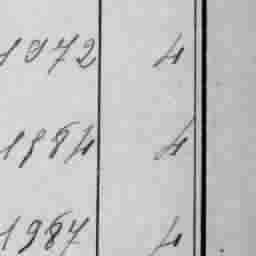 1972 4
1984 4
1987 4